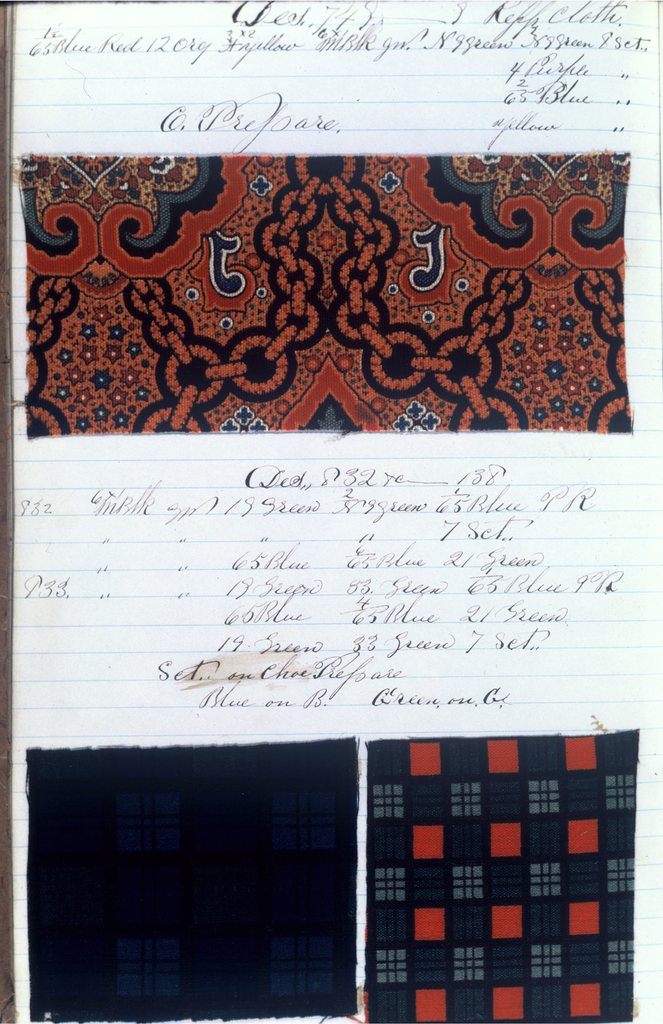 Repp Cloth.
65 Blue Red 12 Org yellow Blk N 9 green 9 green 8 Set..
4 Purple "
65 Blue "
yellow "
O. Prepare.
832 138
832 Blk 19 Green 9 green 65 Blue P R
" " " " 7 Set..
" " 65 Blue 65 Blue 21 Green
833. " " 19 Green 33. Green 65 Blue P R
65 Blue 65 Blue 21 Green
19 Green 33 Green 7 Set..
Set.. on Prepare
Blue on B. Green, on G.